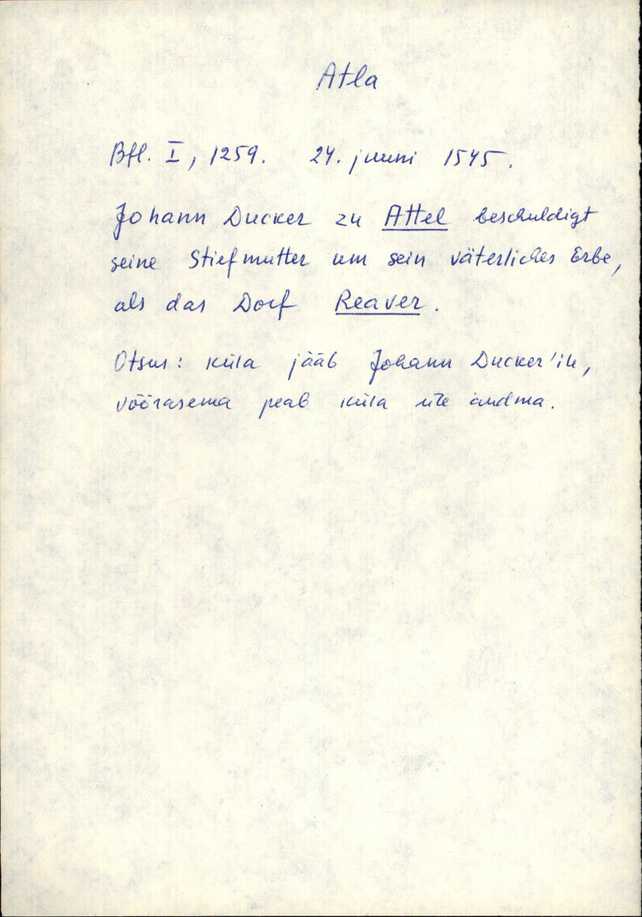 Atla
Bfl. I, 1259. 24. juuni 1545.
Johann Ducker zu Attel beschuldigt
seine Stiefmutter um sein väterliches Erbe,
als das Dorf Reaver.
Otsus: küla jääb Johann Ducker'ile,
võõrasema peab küla üle andma.